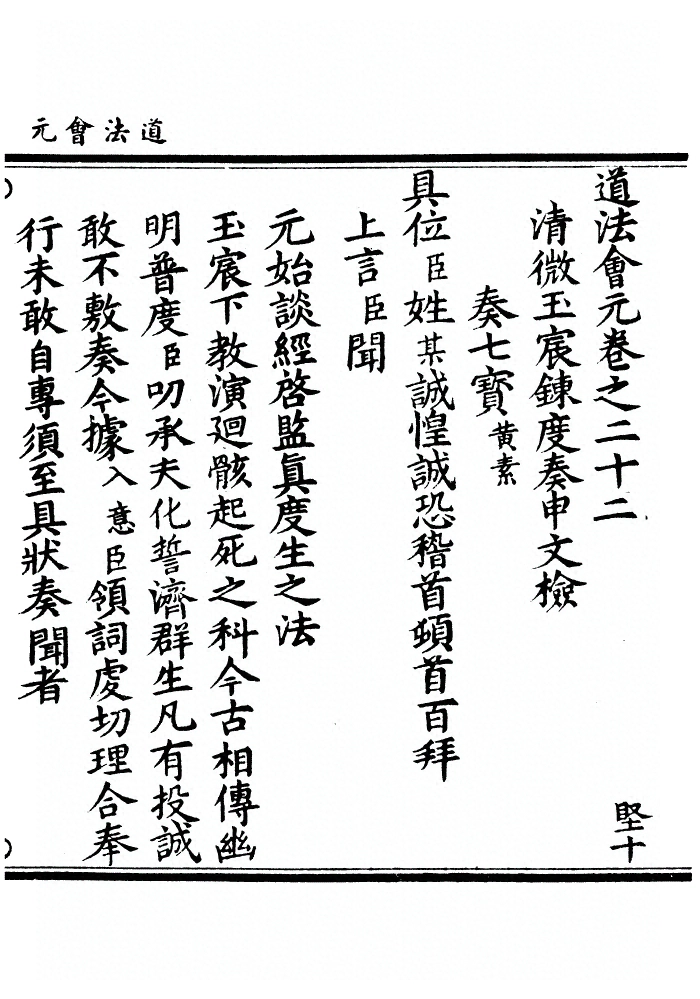 道法會元
道法會元卷之二十二
堅十
清微玉宸鍊度奏申文檢
奏七寶黃素
具位臣姓某誠惶誠恐稽首頓首百拜
上言臣聞
元始談經啓監真度生之法
玉宸下教演廻骸起死之科今古相傳幽
明普度臣叨承夫化誓濟群生凡有投誠
敢不敷奏今據入意臣領詞虔切理合奉
行未敢自專須至具狀奏聞者